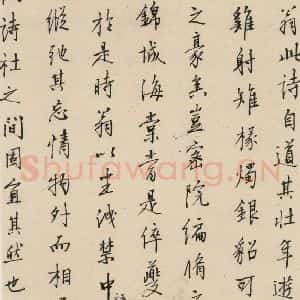 翁此诗自道其壮年游
雞射雉椽燭銀貂可
之豪豈密院編脩
錦城海棠者是倅夔
於是時翁以王城禁中
縱弛其忘情物外而相
詩社之間固宜其然也
Shufawang.CN